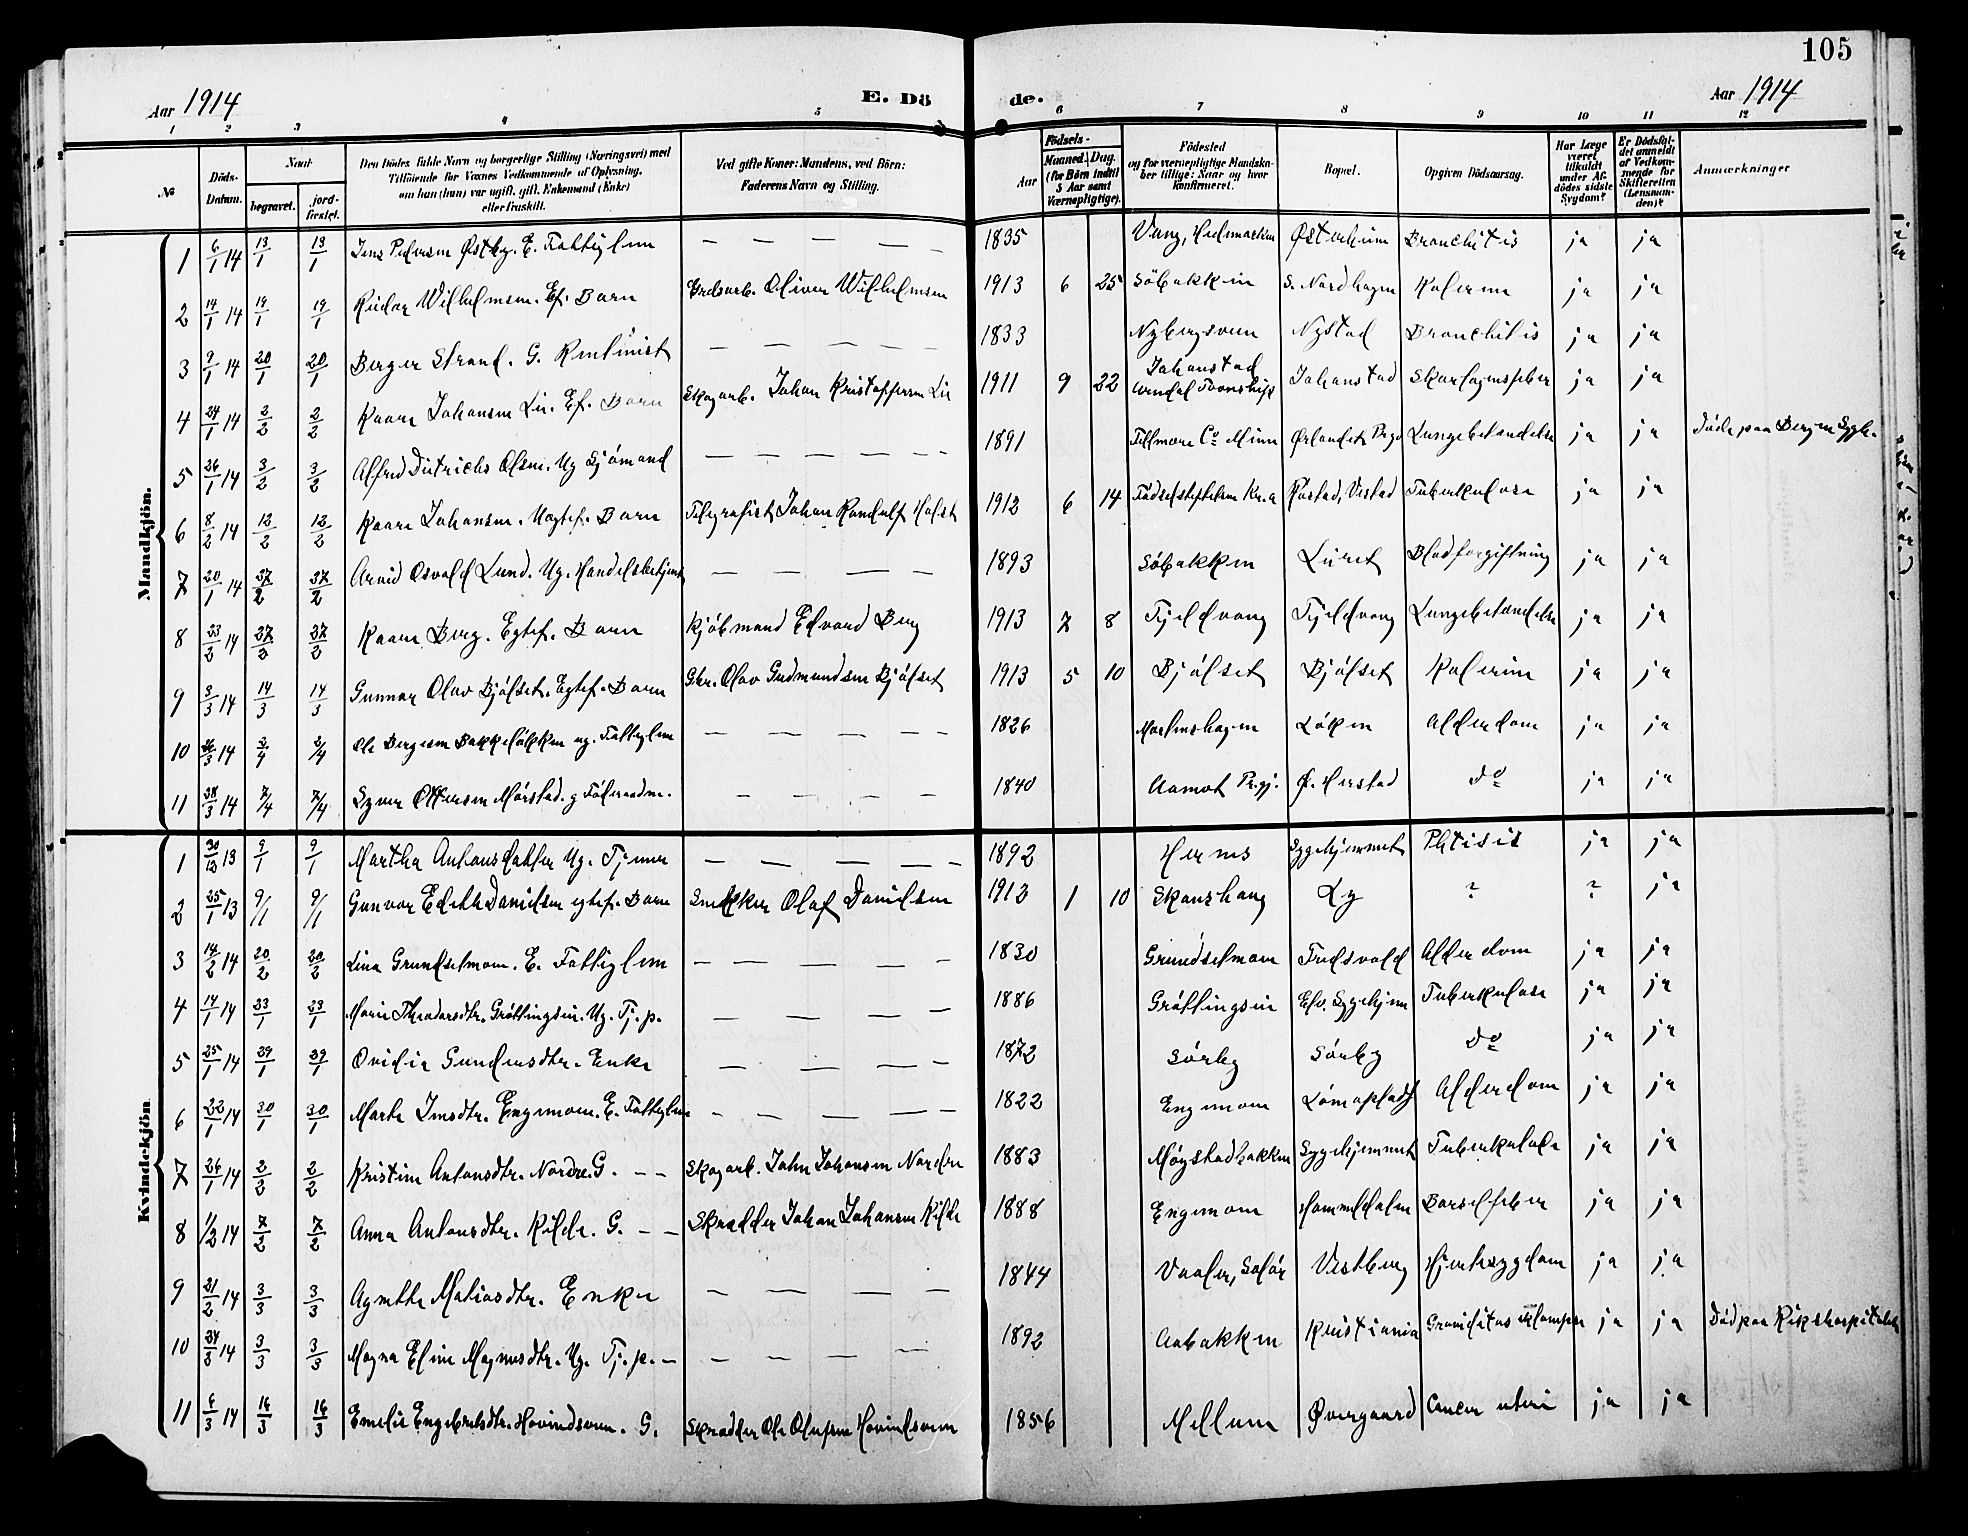 105
Aar 1914 E. Dö de. Aar 1914
1 2 3 4 5 6 7 8 9 10 11 12
№ Döds-Datum. Naar begravet. jord-fæstet. Den Dödes fulde Navn og borgerlige Stilling (Næringsvei) med Tilföiende for Voxnes Vedkommende af Oplysning, om han (hun) var ugift, gift, Enkemand (Enke) eller fraskilt. Ved gifte Koner: Mandens, ved Börn: Faderens Navn og Stilling. Aar Födsels- Maaned. Dag. (for Börn indtil 5 Aar samt Værnepligtige). Födested og for værnepligtige Mandskaber tillige: Naar og hvor konfirmeret. Bopæl. Opgiven Dödsaarsag. Har Læge været tilkaldt under Afdödes sidste Sygdom? Er Dödsfaldet anmeldt af Vedkommende for Skifteretten (Lensmanden)? Anmærkninger
Mandkjön.
1 6/1 14 13/1 13/1 Jens Pedersen Østby. E. Fattiglem — — — — 1835 Vang, Hedmarken Østerheim Bronchitis ja ja
2 14/1 14 19/1 19/1 Reidar Wilhelmsen. Ef. Barn Oliver Wilhelmsen 1913 6 25 Söbakken S. Nordhagen Kolerine ja ja
3 9/1 14 20/1 20/1 Berger Strand. G. — — — — 1833 Nybergsveen Nystad Bronchitis ja ja
4 24/1 14 2/2 2/2 Kaare Johansen Lie. Ef. Barn Skogarb. Johan Kristoffersen Lie 1911 9 22 Johanstad Johanstad Skarlagensfeber ja ja
5 26/1 14 3/2 3/2 Alfred Ditrichs Olsen. Ug Sjömand — — — — — 1891 Arendal Township Fillmore Co Minn Ørlandet Prgj Lungebetændelse ja ja Döde paa Bergen Sygeh.
6 8/2 14 12/2 12/2 Kaare Johansen. Uegtef. Barn Telegrafist Johan Randulf Holst 1912 6 14 Födselsstiftelsen Kr.a Vestad Tuberkulose ja ja
7 20/1 14 27/2 27/2 Arvid Osvald Lund. Ug. Handelsbetjent — — — — 1893 Söbakken Lüret Blodforgiftning ja ja
8 23/2 14 27/2 27/2 Kaare Berg. Egtef. Barn Kjöbmand Edvard Berg 1913 7 8 Fjeldvang Fjeldvang Lungebetændelse ja ja
9 3/3 14 14/3 14/3 Gunnar Olav Bjölset. Egtef. Barn Gbr. Olav Gudmundsen Bjölset 1913 5 10 Bjölset Bjölset Kolerine ja ja
10 26/3 14 2/4 2/4 Ole Bergersen Bakkelökken ug. Fattiglem — — — — — 1826 Malmshagen Löken Alderdom ja ja
11 28/3 14 7/4 7/4 Syver Ottersen Mörstad. g Föderaadm. — — — — 1840 Aamot Prgj. Ø. Herstad do ja ja
Kvindekjön
1 30/12 13 9/1 9/1 Martha Antonsdatter Ug. Tjener — — — — — 1892 Hernes Sygehjemmet Phtisis ja ja
2 25/1 13 9/1 9/1 Gunvor Edith Danielsen egtef. Barn Snekker Olaf Danielsen 1912 1 10 Skanshaug Ly ? ? ja
3 14/2 14 20/2 20/2 Lina Grundsetmoen. E. Fattiglem — — — — — 1830 Grundsetmoen Fredsvold Alderdom ja ja
4 14/1 14 23/1 23/1 Marie Theodorsdtr. Gröttingsen. Ug. Tj. p. — — — — 1886 Gröttingsen Elv. Sygehjem Tuberkulose ja ja
5 25/1 14 29/1 29/1 Ovidie Gundersdtr. Enke — — — — 1872 Sörby Sörby do ja ja
6 22/1 14 30/1 30/1 Marte Jensdtr. Engemoen. E. Fattiglem — — — — — 1822 Engemoen Alderdom ja ja
7 26/1 14 2/2 2/2 Kristine Antonsdtr. Nordre. G. — — Skogarb. John Johansen Nordre 1883 Møystadbakken Sygehjemmet Tuberkulose ja ja
8 1/2 14 7/2 7/2 Anna Antonsdtr. Kilde. G. — — Skrædder Johan Johansen Kilde 1888 Engemoen Hommeldalen Barselfeber ja ja
9 21/2 14 3/3 3/3 Agnethe Matiasdtr. Enke — — — — 1844 Vaaler, Solör Vestberg Hjertesygdom ja ja
10 3/3 3/3 Magna Eline Magnusdtr. Ug. Tj. p. — — — — — 1892 Aabakken Kristiania Graviditas eklampsi ja ja Död paa Rikshospitalet
11 6/3 14 16/3 16/3 Emelie Engebretsdtr. Hovindsveen. G. Skrædder Ole Olufsen Hovindsveen 1856 Mellum Øvergaard Cancer uteri ja ja